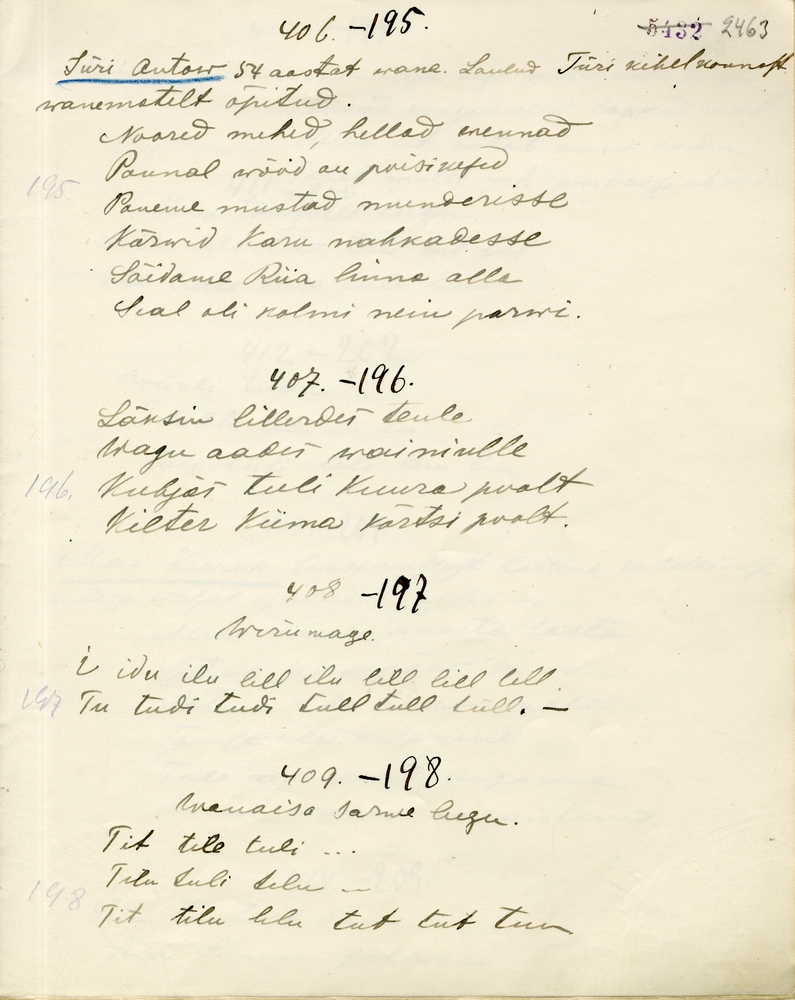 406. -195.
5432 2463
Jüri Antow 54 aastat wana. Laulud Türi kihelkonnast
wanematelt õpitud.
Noored mehed, hellad wennad
Pannal wööd on poisikesed
195
Paneme mustad munderisse
Kärwid Karu nahkadesse
Sõidame Riia linna alla
Seal oli kolmi nein parwi.
407. -196.
Läksin lillerdes teule
Wagu aades wainiulle
196. Kubjas tuli Kuura poolt
Kilter Kiima Kõrtsi poolt.
408 -197
Wirumage.
I idu ilu lill ilu lill lill lill.
197 Tu tudi tudi tull tull tull. —
409. -198.
Wanaisa sarwe lugu.
Tit tile tuli ...
Tilu tuli tilu —
198
Tit tilu lilu tut tut tuu